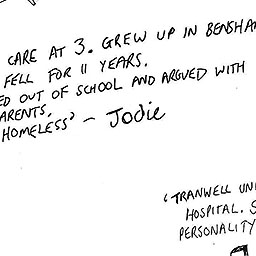 CARE AT 3. GREW UP IN BENSHAM
FELL FOR 11 YEARS.
ED OUT OF SCHOOL AND ARGUED WITH
ARENTS.
HOMELESS' - Jodie
'TRANWELL UNI
HOSPITAL. S
PERSONALITY